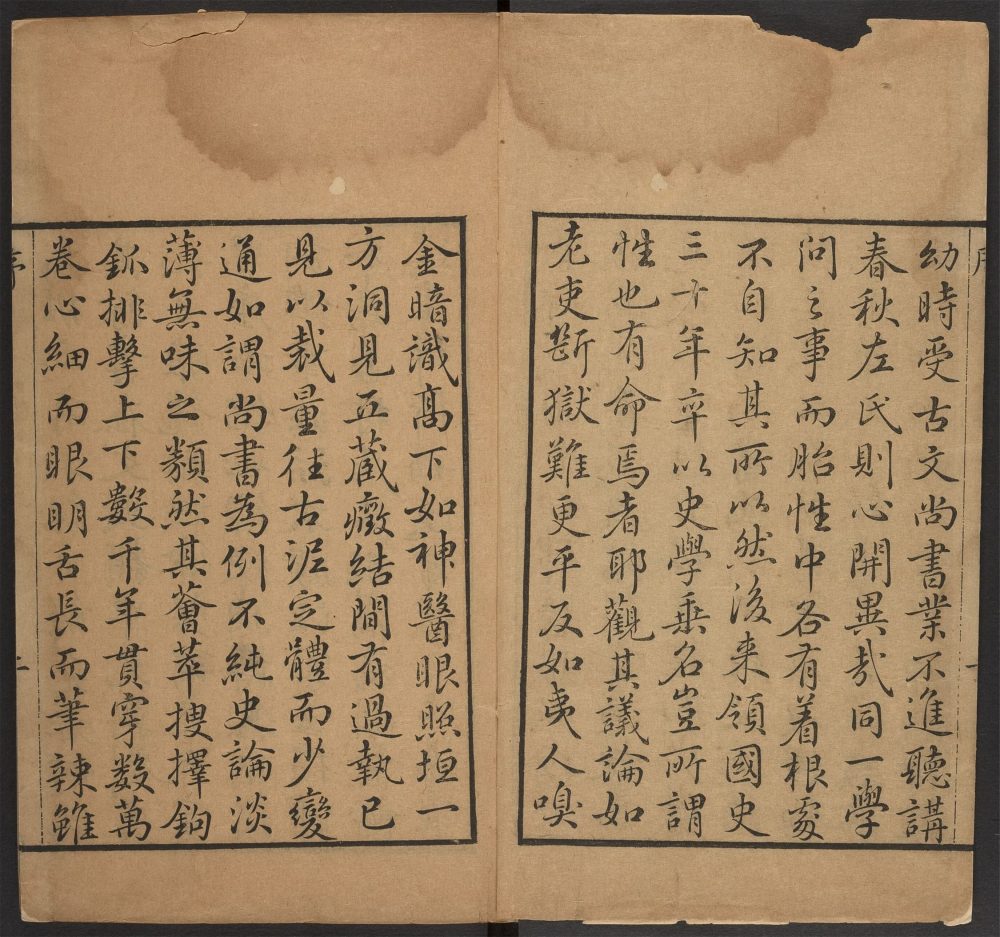 幼時受古文尚書業不進聽講
春秋左氏則心開異哉同一學
問之事而胎性中各有着根處
不自知其所以然後来領國史
三十年卒以史學乗名豈所謂
性也有命焉者耶觀其議論如
老吏斷獄難更平反如夷人嗅
金暗識髙下如神醫眼照垣一
方洞見五蔵癥結間有過執已
見以裁量徃古泥定體而少變
通如謂尚書為例不純史論淡
薄無味之類然其薈萃搜擇鈎
鈲排擊上下數千年貫穿数萬
卷心細而眼明舌長而筆辣雖
序
二